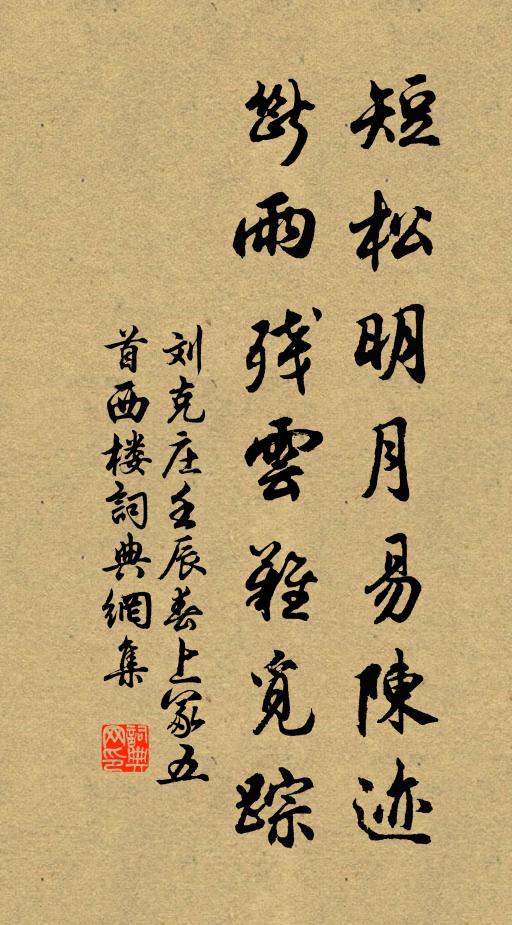 短松明月易陳迹
斷雨残雲難覓踪
刘克庄壬辰春上冢五
首西楼詞典網集
詞典网印